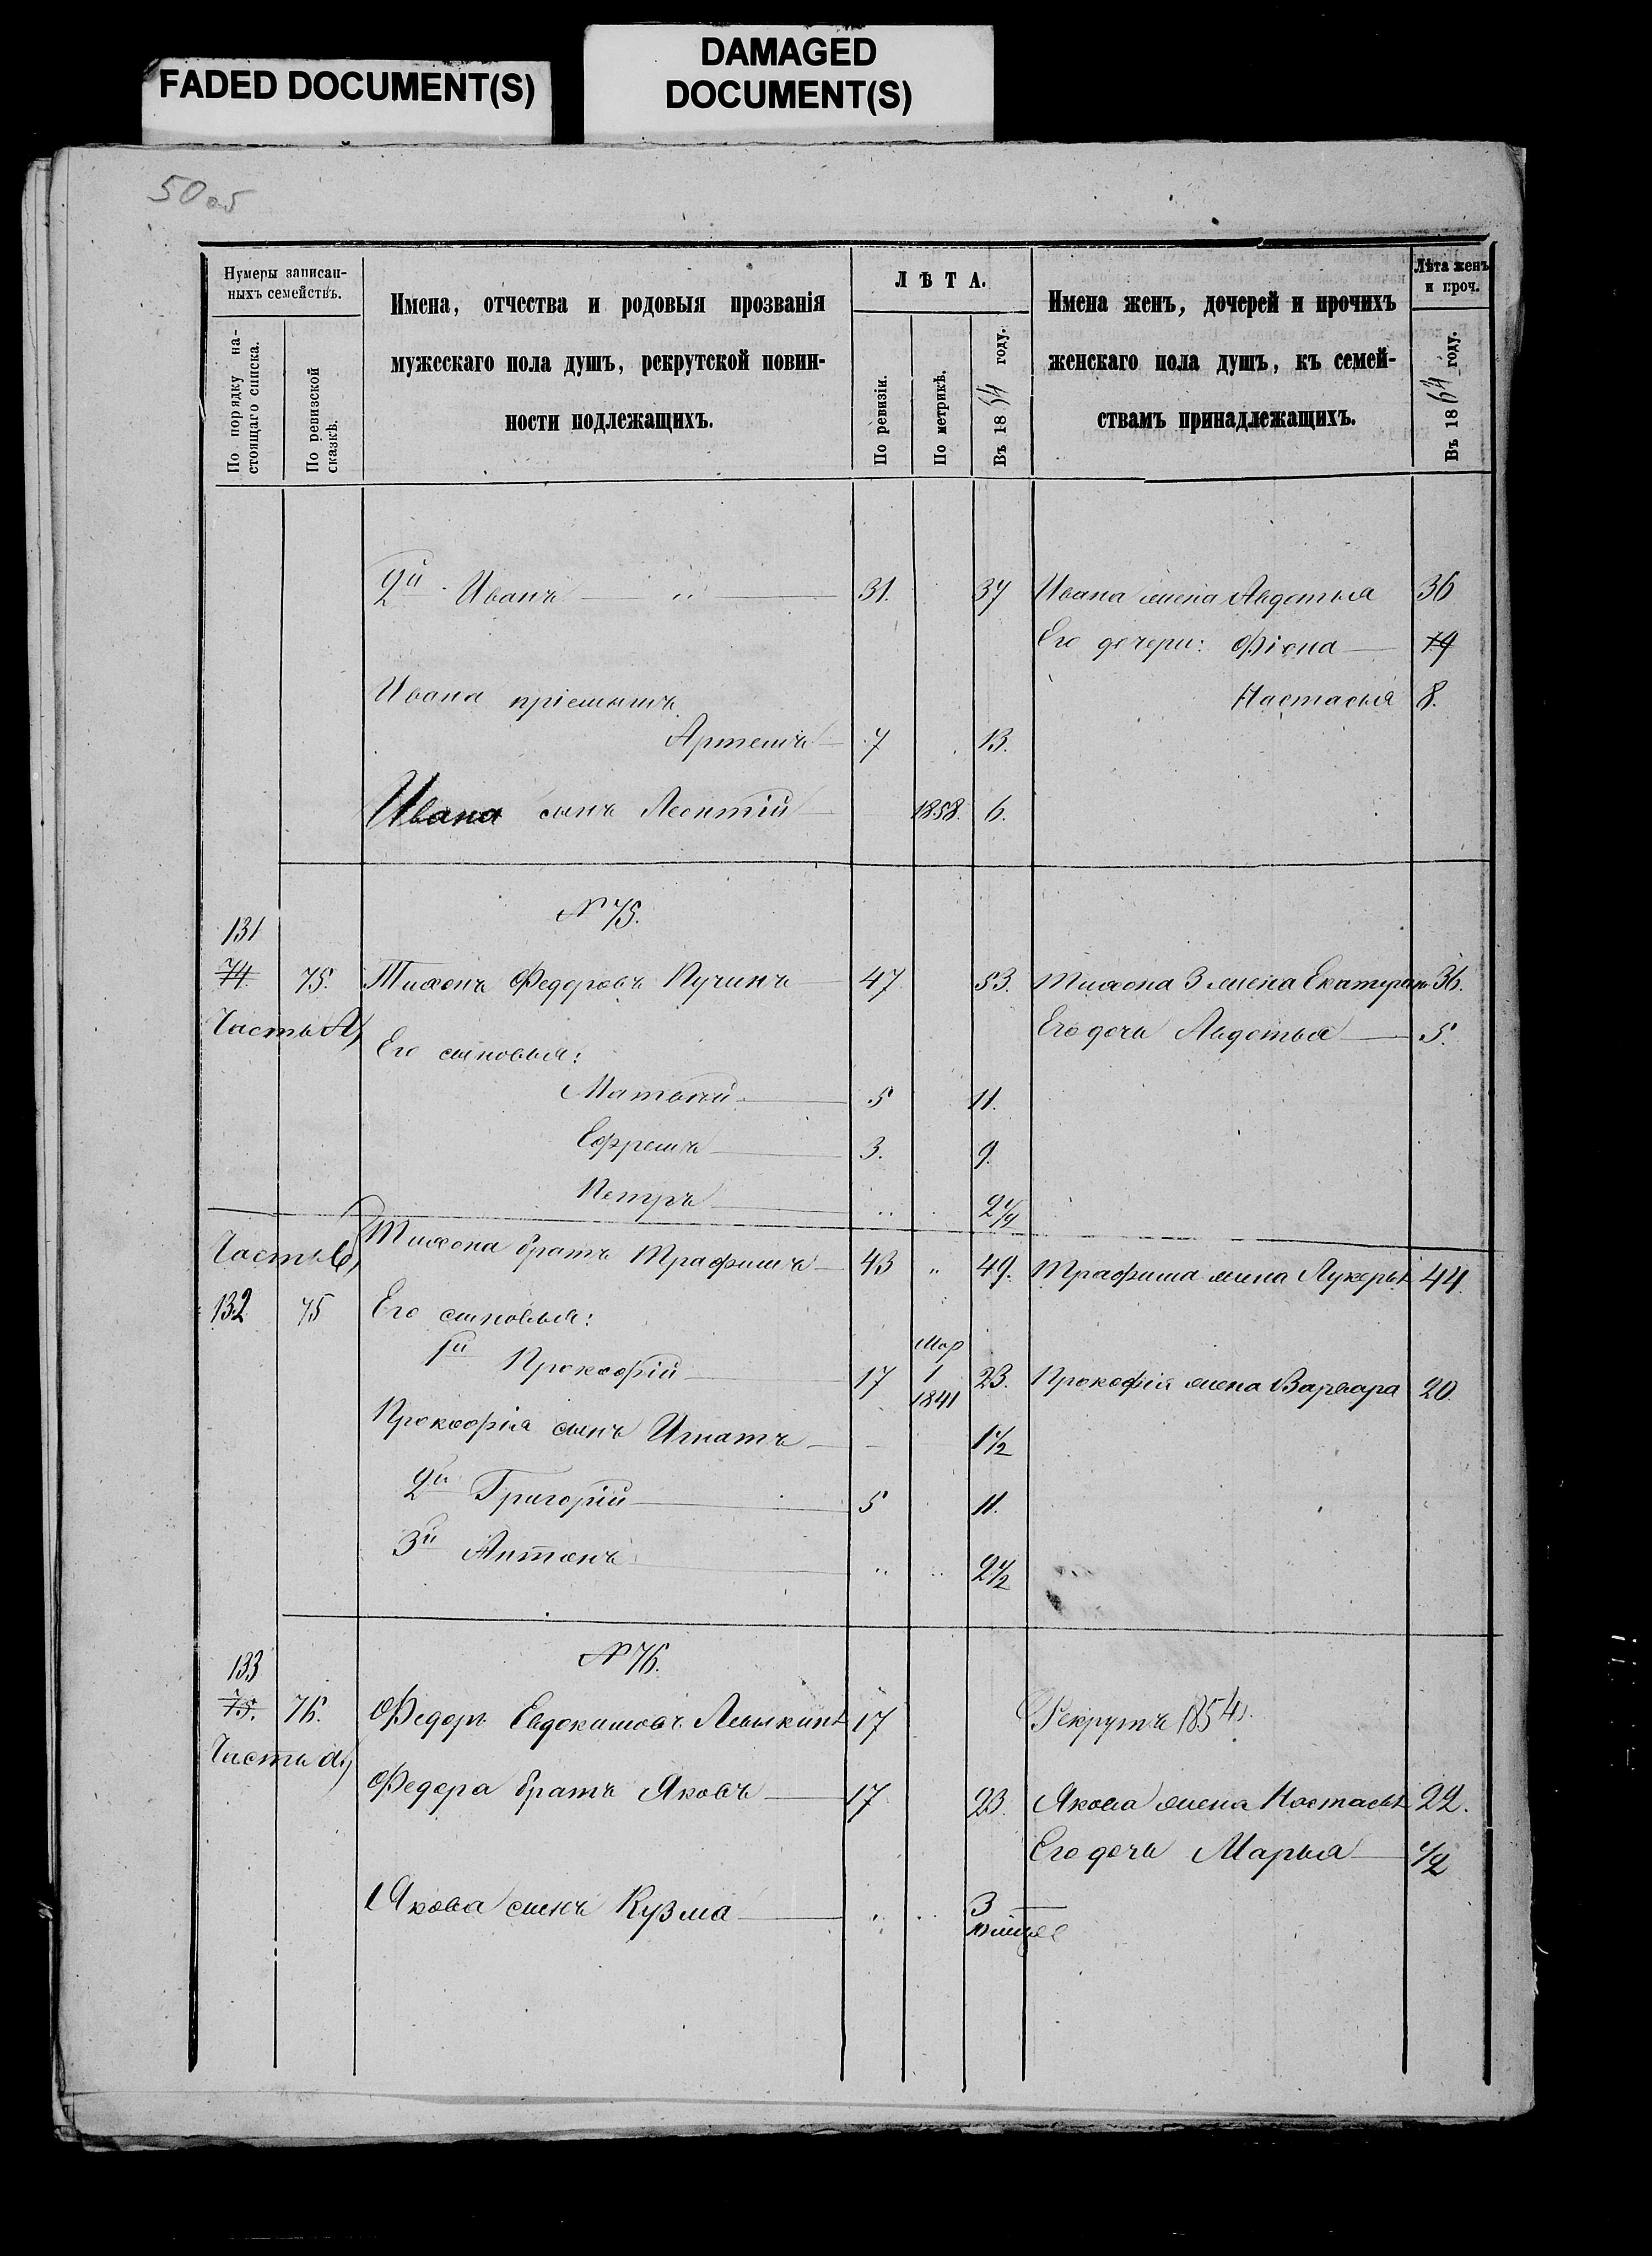 FADED DOCUMENT(S)
DAMAGED
DOCUMENT(S)
50 об
Нумеры записан-
ныхъ семействъ.
По порядку на-
стоящаго списка.
По ревизской
сказкѣ.
Имена, отчества и родовыя прозванія
мужескаго пола душъ, рекрутской повин-
ности подлежащихъ.
ЛѢТА.
По ревизіи.
По метрикѣ.
Въ 1864 году.
Имена женъ, дочерей и прочихъ
женскаго пола душъ, къ семей-
ствамъ принадлежащихъ.
Лѣта женъ
и проч.
Въ 1864 году.
2й Иванъ — " — 31. 37 Ивана жена Авдотья 36
Его дочери: Фіона — 19
Ивана пріемышъ Настасья 8.
Артемъ — 7 13.
Ивана сынъ Леонтій — 1858. 6.
№ 75.
131
74. 75. Тихонъ Федоровъ Пучинъ — 47 53. Тихона 3 жена Екатерин 36.
Часть А) Его дочь Авдотья — 5.
Его сыновья:
Матвей — 5 11.
Ефремъ — 3. 9.
Петръ — " 2 1/4
Часть б) Тихона братъ Трафимъ — 43 " 49. Трафима жена Лукерья 44.
132 75 Его сыновья:
1й Прокофій — 17 Мар 1 1841 23. Прокофія жена Варвара 20.
Прокофія сынъ Игнатъ — 1 1/2
2й Григорій — 5 11.
3й Антонъ — " " 2 1/2
№ 76.
133
75. 76. Федоръ Евдокимовъ 17 Рекрутъ 1854
Часть а)
Федора братъ Яковъ — 17 23. Якова жена Настасья 22.
Его дочь Марья — 1/2
Якова сынъ Кузма — " " 3